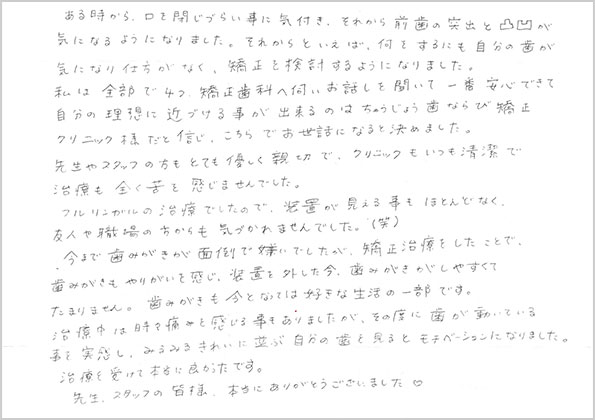 ある時から、口を閉じづらい事に気付き、それから前歯の突出と凸凹が
気になるようになりました。それからといえば、何をするにも自分の歯が
気になり仕方がなく、矯正を検討するようになりました。
私は全部で4つ、矯正歯科へ伺いお話しを聞いて一番安心できて
自分の理想に近づける事が出来るのはちゅうじょう歯ならび矯正
クリニック様だと信じ、こちらでお世話になると決めました。
先生やスタッフの方もとても優しく親切で、クリニックもいつも清潔で
治療も全く苦を感じませんでした。
フルリンガルの治療でしたので、装置が見える事もほとんどなく、
友人や職場の方からも気づかれませんでした。(笑)
今まで歯みがきが面倒で嫌いでしたが、矯正治療をしたことで、
歯みがきもやりがいを感じ、装置を外した今、歯みがきがしやすくて
たまりません。歯みがきも今となっては好きな生活の一部です。
治療中は時々痛みを感じる事もありましたが、その度に歯が動いている
事を実感し、みるみるきれいに並ぶ自分の歯を見るとモチベーションになりました。
治療を受けて本当に良かったです。
先生、スタッフの皆様、本当にありがとうございました♡